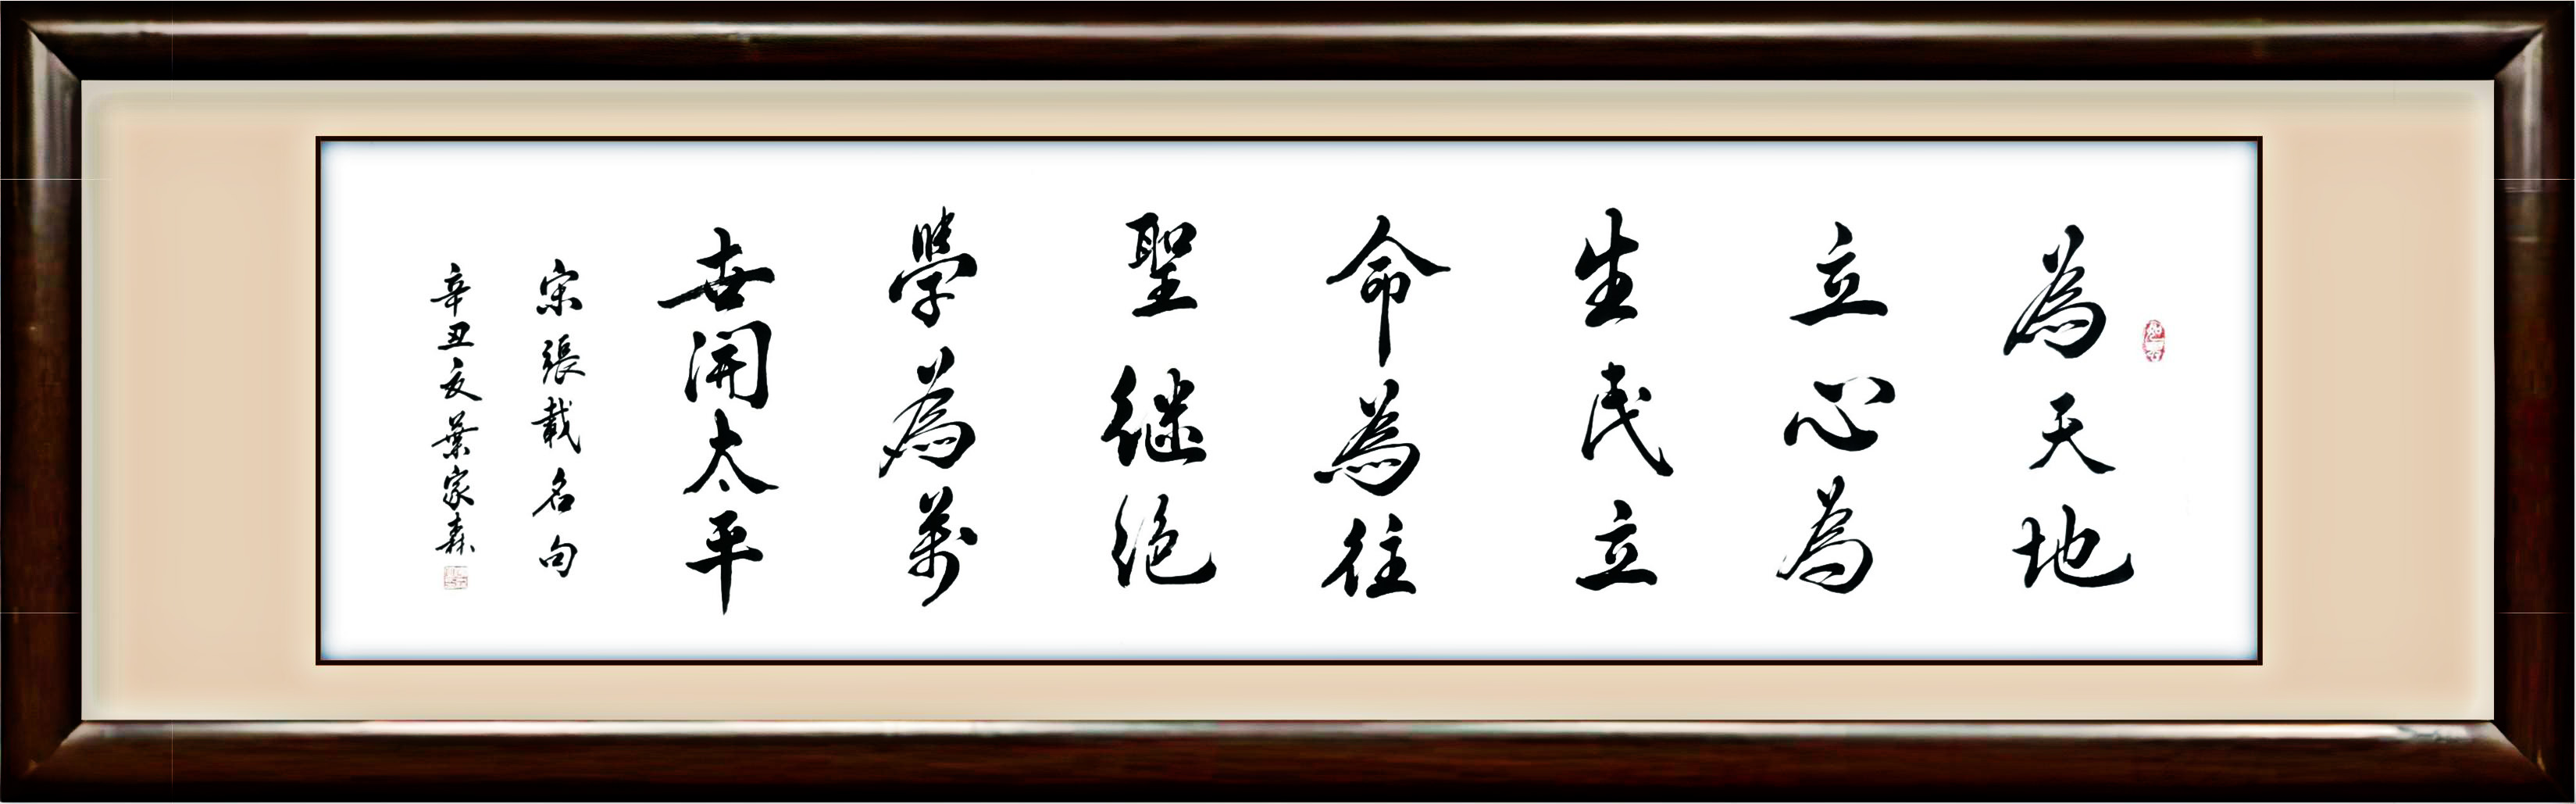 為天地
立心為
生民立
命為往
聖继绝
學為萬
世開太平
宋張載名句
辛丑夏葉家森